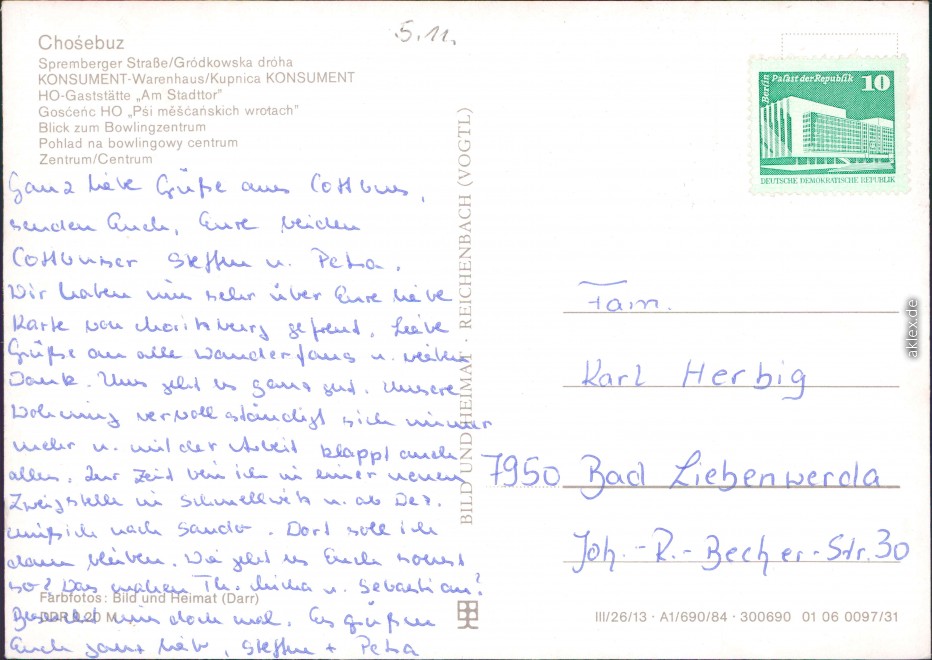 5.11.
Chośebuz
Spremberger Straße/Gródkowska dróha
KONSUMENT-Warenhaus/Kupnica KONSUMENT
HO-Gaststätte „Am Stadttor"
Gosćeńc HO „Pśi měšćańskich wrotach"
Blick zum Bowlingzentrum
Pohlad na bowlingowy centrum
Zentrum/Centrum
Ganz liebe Grüße aus Cottbus,
senden Euch, Eure beiden
Cottbuser Steffen u. Petra.
Wir haben uns sehr über Eure liebe
Karte von Moritzburg gefreut. Liebe
Grüße an alle Wanderfans u. vielen
Dank. Uns geht es ganz gut. Unsere
Wohnung vervollständigt sich immer
mehr u. mit der Arbeit klappt auch
alles. Zur Zeit bin ich in einer neuen
Zweigstelle in Schmellwitz u. ab Dez.
muß ich nach Sandow. Dort soll ich
dann bleiben. Wie geht es Euch sonst
so? Das machen Th. Micha u. Sebastian?
Besucht uns doch mal. Es grüßen
Euch ganz lieb, Steffen + Petra
Farbfotos: Bild und Heimat (Darr)
DDR 0,20 M
BILD UND HEIMAT · REICHENBACH (VOGTL)
Berlin Palast der Republik 10
DEUTSCHE DEMOKRATISCHE REPUBLIK
Fam.
Karl Herbig
7950 Bad Liebenwerda
Joh.-R.-Becher-Str. 30
III/26/13 · A1/690/84 · 300690 01 06 0097/31
aklex.de